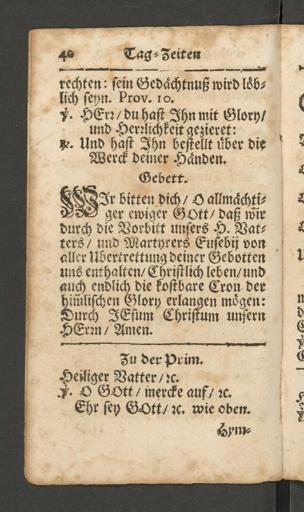 40 Tag-Zeiten
rechten: sein Gedächtnuß wird löb-
lich seyn. Prov. 10.
℣. HErr/ du hast Ihn mit Glory/
und Herrlichkeit gezieret:
℟. Und hast Ihn bestellt über die
Werck deiner Händen.
Gebett.
WIr bitten dich/ O allmächti-
ger ewiger GOtt/ daß wir
durch die Vorbitt unsers H. Vat-
ters/ und Martyrers Eusebij von
aller Ubertrettung deiner Gebotten
uns enthalten/ Christlich leben/ und
auch endlich die kostbare Cron der
him̃lischen Glory erlangen mögen:
Durch JEsum Christum unsern
HErrn/ Amen.
Zu der Prim.
Heiliger Vatter/ ꝛc.
℣. O GOtt/ mercke auf/ ꝛc.
Ehr sey GOtt/ ꝛc. wie oben.
Hym-